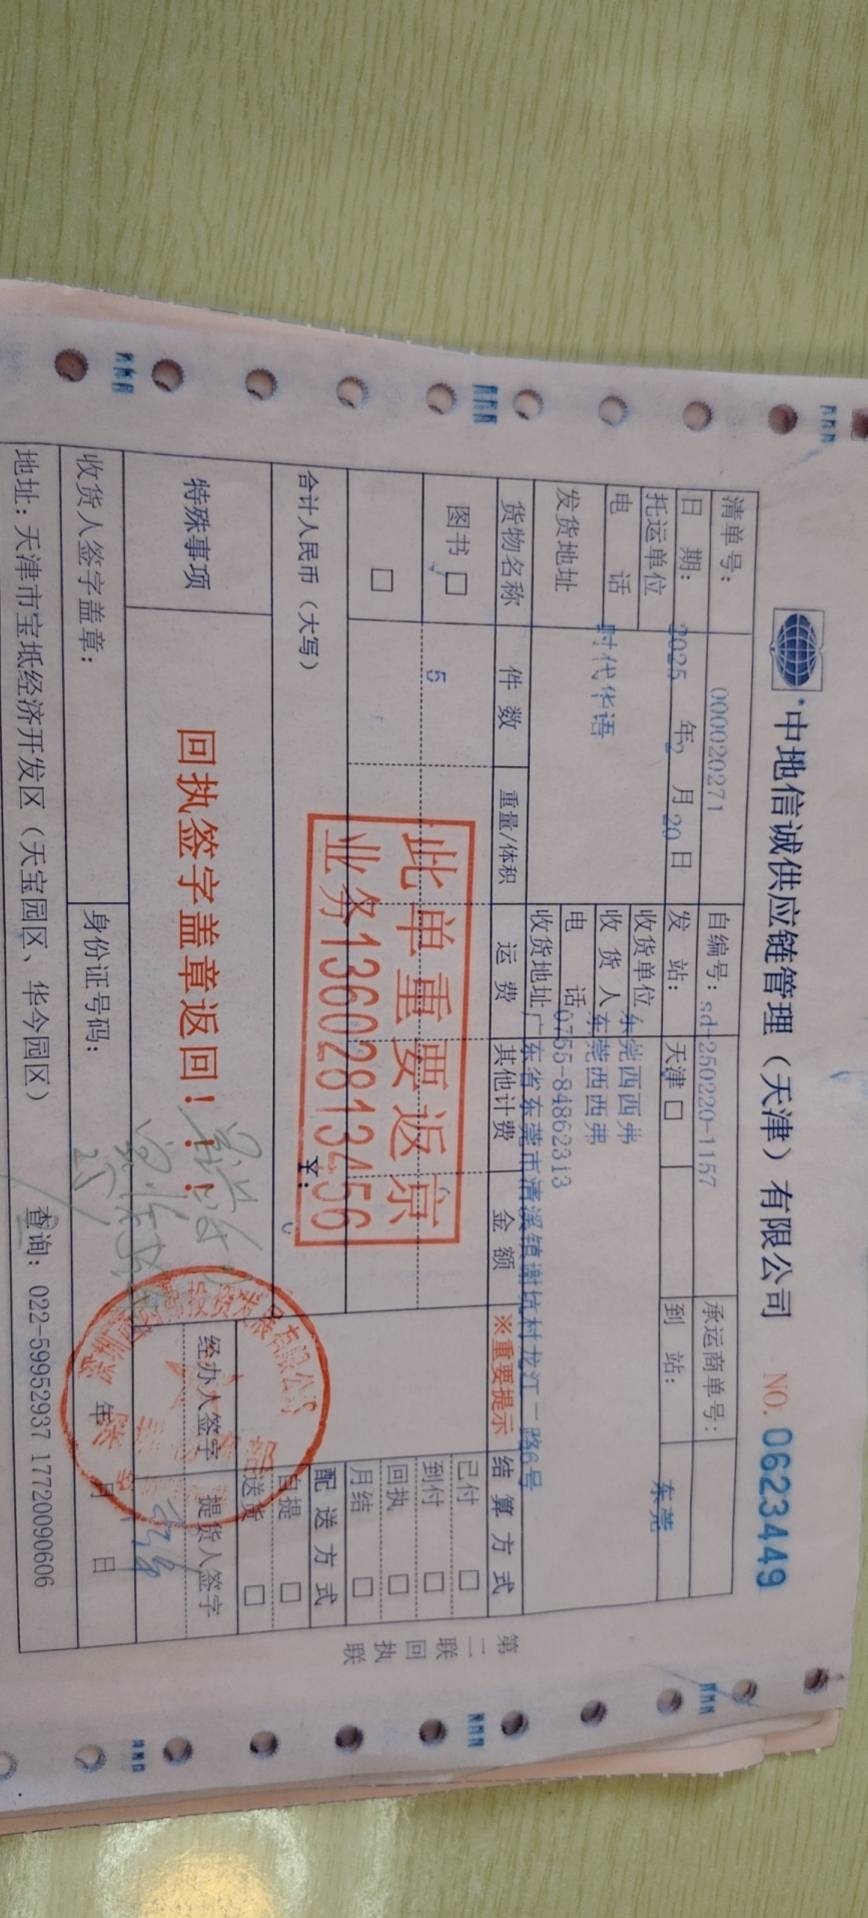 中地信诚供应链管理（天津）有限公司 NO. 0623449
清单号： 000020271 自编号：sd-250220-1157 承运商单号：
日 期： 2025 年 2 月 20 日 发 站： 天津 □ 到 站： 东莞
托运单位 收货单位 东莞西西弗
电 话 时代华语 收 货 人 东莞西西弗
电 话 0755-84862313
发货地址 收货地址 广东省东莞市清溪镇谢坑村龙江一路6号
货物名称 件 数 重量/体积 运 费 其他计费 金 额 ※重要提示 结 算 方 式
图书 □ 5 已付 □
到付 □
□ 回执 □
月结 □
此单重要返京
业务13602813456
合计人民币（大写） ￥： 配 送 方 式
自提 □
送货 □
特殊事项 回执签字盖章返回！！！ 经办人签字 提货人签字
收货人签字盖章： 身份证号码： 年 月 日
地址：天津市宝坻经济开发区（天宝园区、华今园区） 查询：022-59952937 17720090606
第二联 回执联